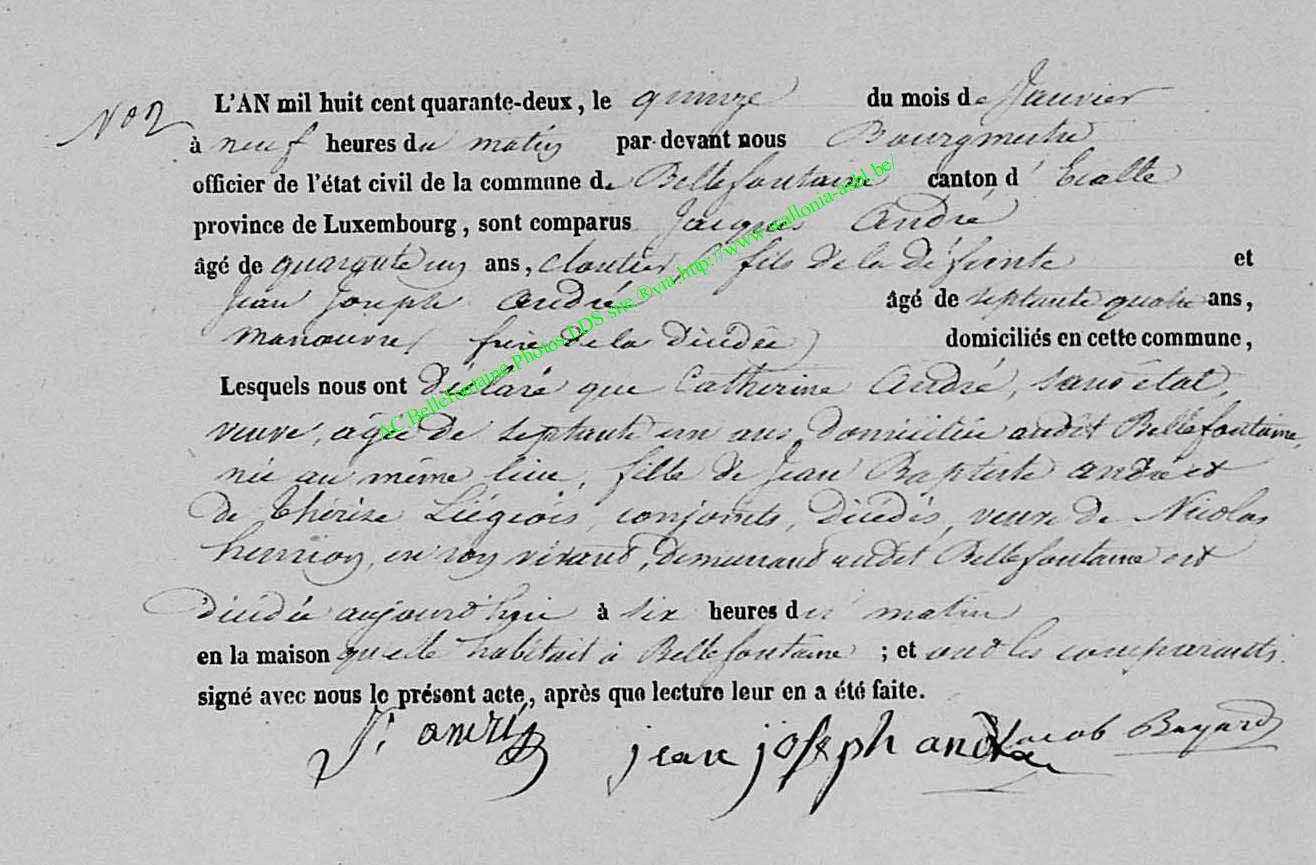 No 2
L'AN mil huit cent quarante-deux, le quinze du mois de Janvier
à neuf heures du matin par devant nous Bourgmestre
officier de l'état civil de la commune de Bellefontaine canton d'Etalle
province de Luxembourg, sont comparus Jacques André
âgé de quarante un ans, cloutier, fils de la défunte et
Jean Joseph André âgé de septante quatre ans,
manoeuvre, frère de la décédée domiciliés en cette commune,
Lesquels nous ont déclaré que Catherine André, sans état,
veuve, âgée de septante un ans, domiciliée audit Bellefontaine,
née au même lieu, fille de Jean Baptiste André et
de Thérèse Liégeois, conjoints, décédés, veuve de Nicolas
henrion, en son vivant, demeurant audit Bellefontaine est
décédée aujourd'hui à six heures du matin
en la maison qu'elle habitait à Bellefontaine ; et ont les comparants
signé avec nous le présent acte, après que lecture leur en a été faite.
J. andré jean joseph andré Jacob Bayard
AC.Bellefontaine.Photos LDS site ®via http://www.wallonia-asbl.be/